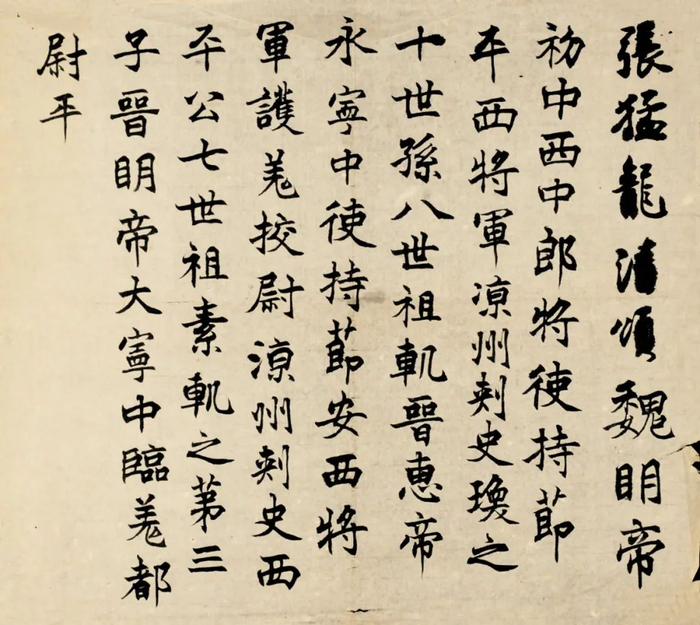 張猛龍清頌魏明帝
初中西中郎將使持節
平西將軍涼州刺史瓊之
十世孫八世祖軌晉惠帝
永寧中使持節安西將
軍護羌挍尉涼州刺史西
平公七世祖素軌之第三
子晉明帝大寧中臨羌都
尉平